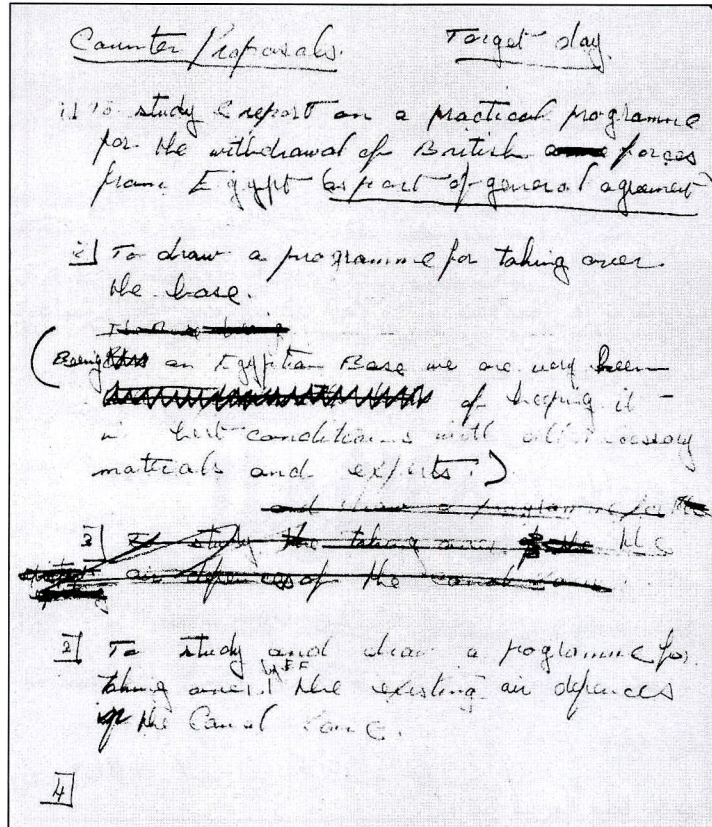 Counter Proposals. Target day.
1] To study & report on a practical programme
for the withdrawal of British forces
from Egypt (as part of general agreement)
2] To draw a programme for taking over
the base.
(Being an Egyptian Base we are very keen
of keeping it
in best conditions with all necessary
materials and experts.)
and draw a programme for the
3] To study the taking over of the the
air defences of the Canal Zone.
3] To study and draw a programme for
taking over the existing air defences
of the Canal Zone.
4]